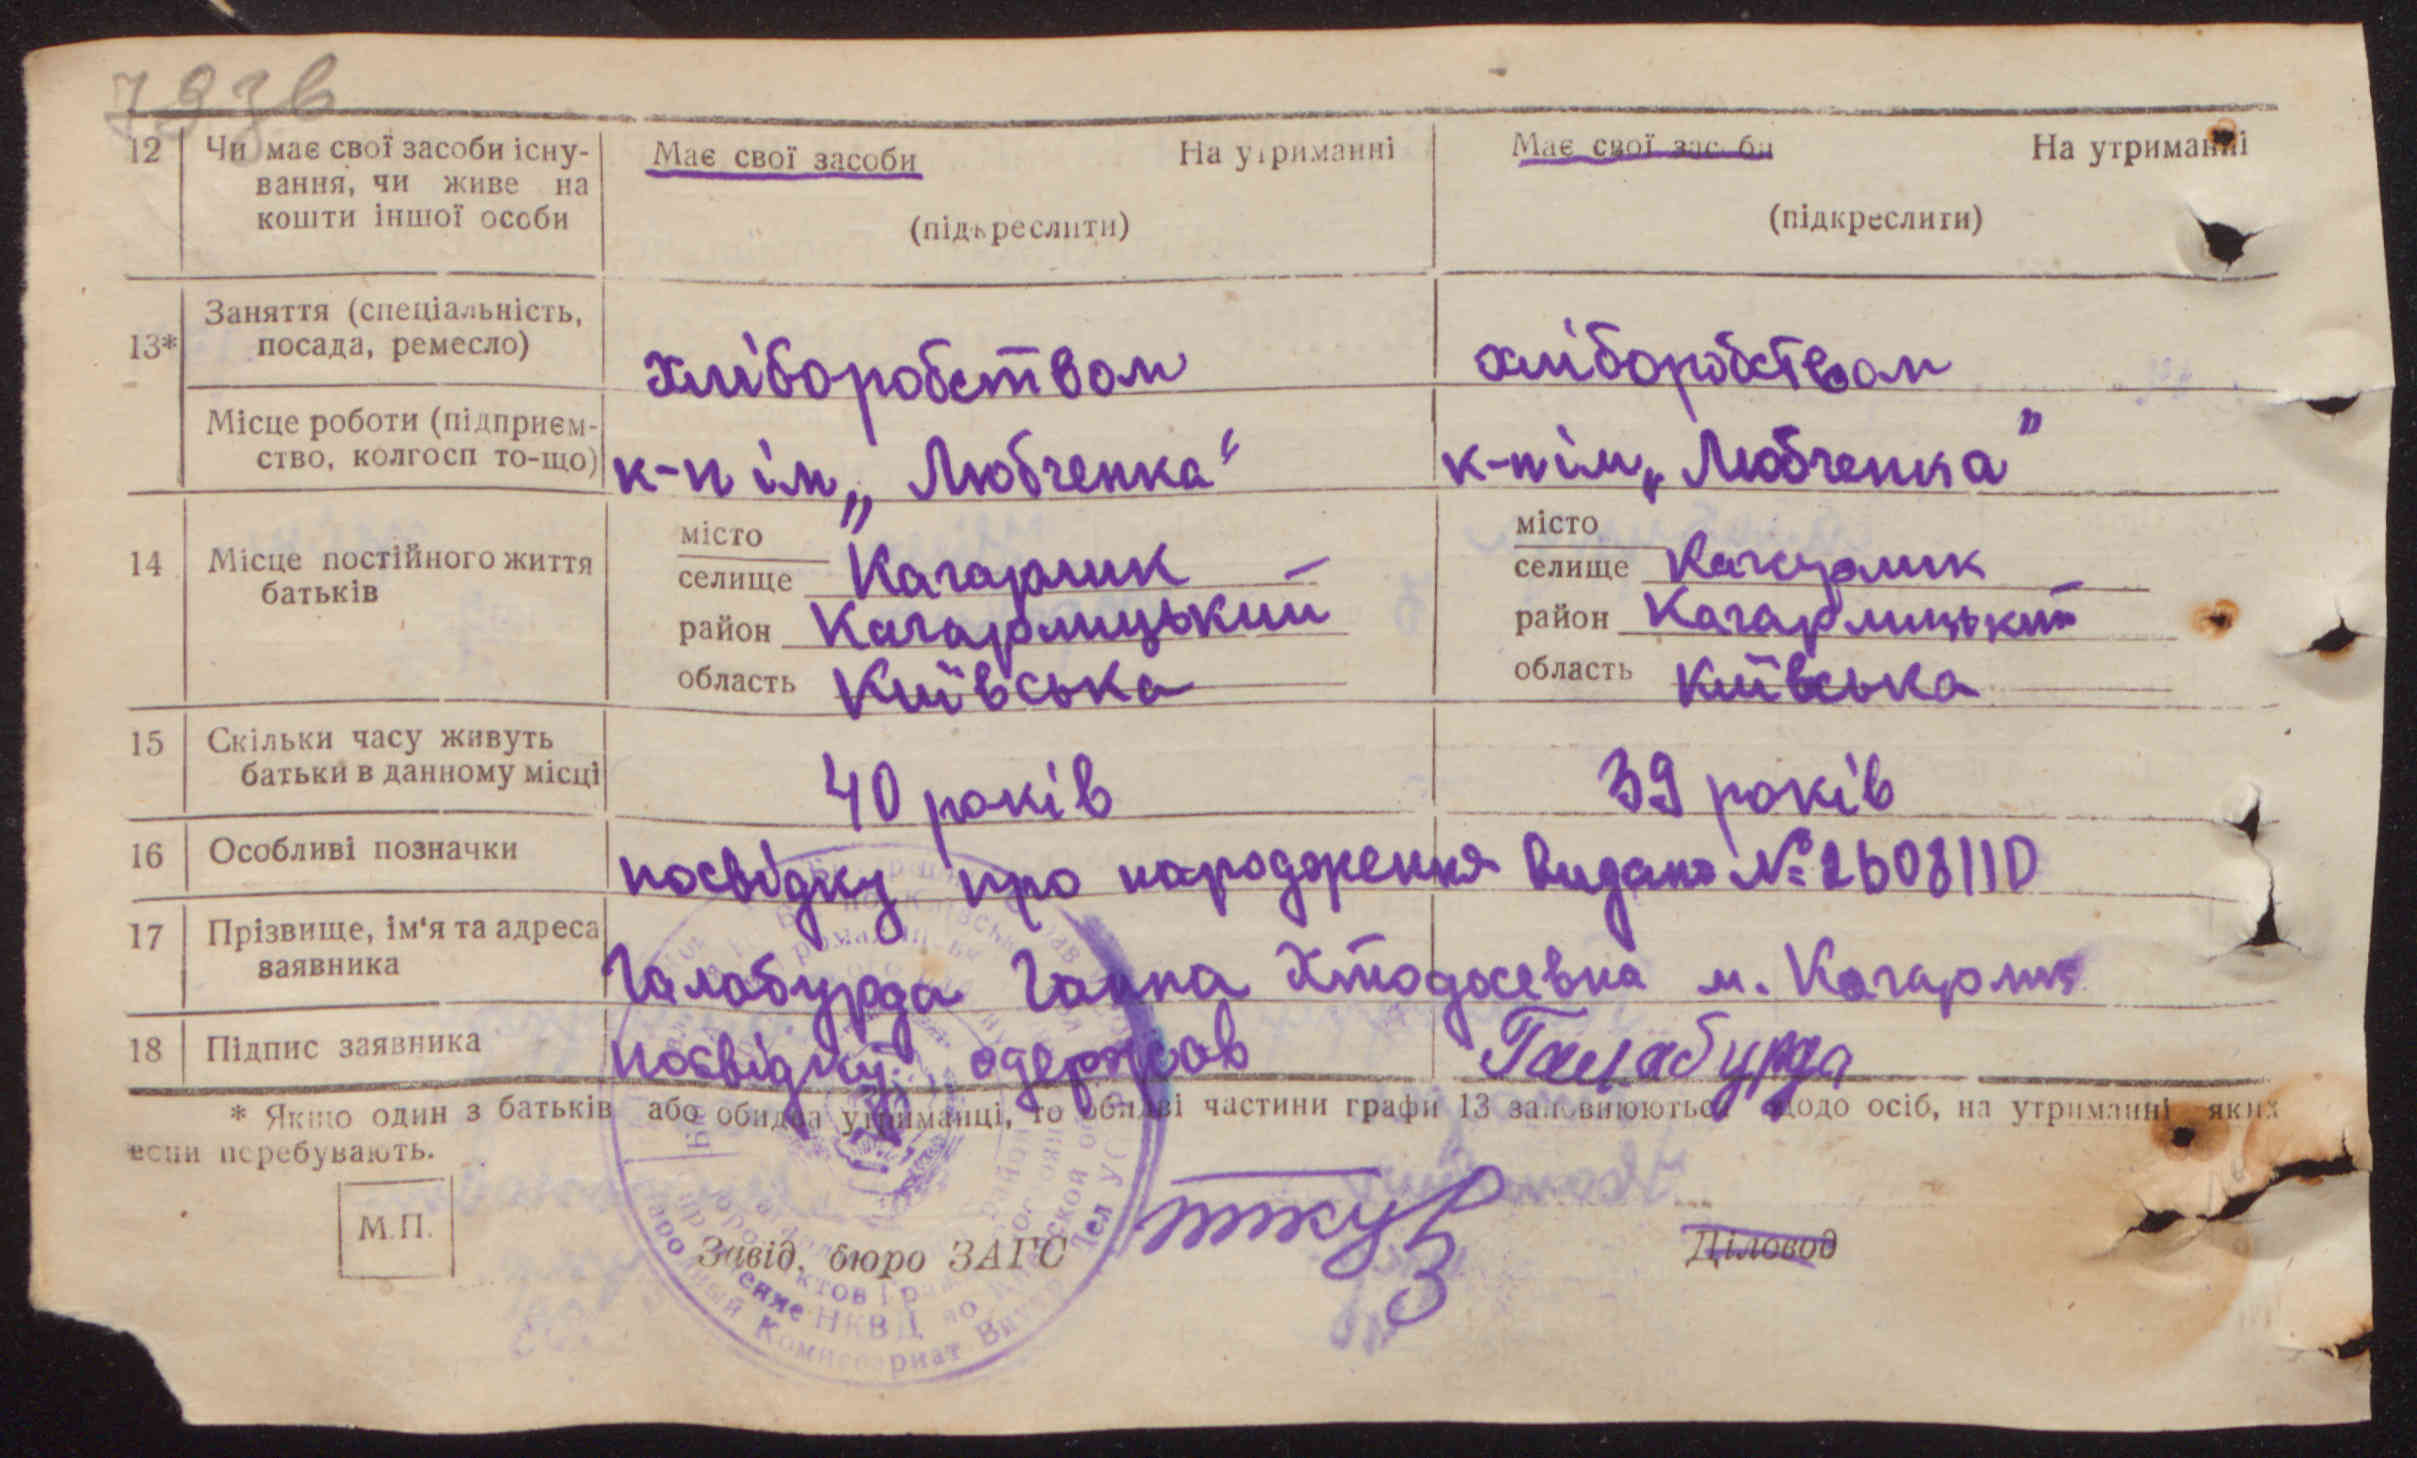 793в
12 Чи має свої засоби існу- Має свої засоби На утриманні Має свої засоби На утриманні
вання, чи живе на
кошти іншої особи (підкреслити) (підкреслити)
13* Заняття (спеціальність,
посада, ремесло) хліборобством хліборобством
Місце роботи (підприєм-
ство, колгосп то-що) к-п ім „Любченка" к-п ім „Любченка"
14 Місце постійного життя місто місто
батьків селище Кагарлик селище Кагарлик
район Кагарлицький район Кагарлицький
область Київська область Київська
15 Скільки часу живуть
батьки в данному місці 40 років 39 років
16 Особливі позначки посвідку про народження видано № 2608110
17 Прізвище, ім'я та адреса
заявника Галабурда Ганна м. Кагарлик
18 Підпис заявника посвідку одержав Галабурда
* Якщо один з батьків або обидва утриманці, то обидві частини графи 13 заповнюються щодо осіб, на утриманні яких
вони перебувають.
М.П. Завід. бюро ЗАГС Діловод